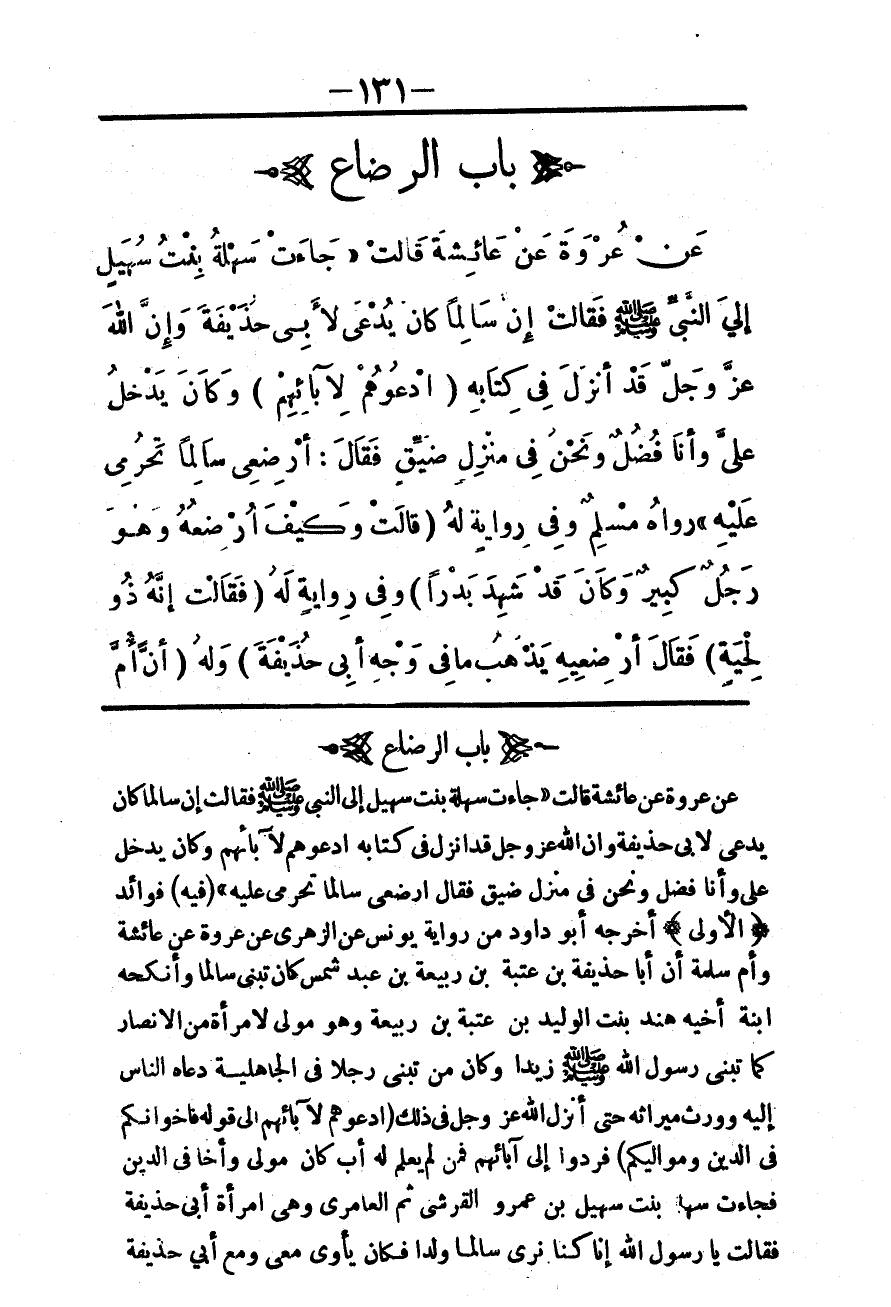 -١٣١-
باب الرضاع
عَنْ عُرْوَةَ عَنْ عَائِشَةَ قَالتْ « جَاءَتْ سَهْلةُ بِنْتُ سُهَيلٍ
إِليَ النَّبيِّ ﷺ فَقَالتْ إِن سَالِماً كانَ يُدْعَى لأَبِى حُذَيْفَةَ وَإِنَّ اللهَ
عزَّ وَجَلّ قَدْ أَنزلَ فِى كِتَابهِ ( ادْعُوهُمْ لِآبَائِهِمْ ) وَكَانَ يَدْخلُ
عَلىَّ وأَنَا فُضُلٌ ونَحْنُ فِى منْزِلٍ ضيِّقٍ فَقَالَ : أَرْضِعِى سَالِماً تَحْرُمِى
عَلَيْهِ » رواهُ مسْلِمٌ وفِى رِوايةٍ لهُ ( قالَتْ وَكَيْفَ أُرْضِعهُ وَهُوَ
رَجُلٌ كبِيرٌ وَكَانَ قَدْ شَهِدَ بَدْراً ) وفى رِوايةٍ لَهُ ( فَقَالَتْ إِنَّهُ ذُو
لِحْيَةٍ ) فَقَالَ أَرْضِعِيهِ يَذْهَبُ مافى وَجْهِ أَبِى حُذَيْفَةَ ) وَلهُ ( أَنَّ أُمَّ
باب الرضاع
عن عروة عن عائشة قالت « جاءت سهلة بنت سهيل إلى النبي ﷺ فقالت إن سالما كان
يدعى لابى حذيفة وان الله عز وجل قد انزل فى كتابه ادعوهم لآبائهم وكان يدخل
على وأنا فضل ونحن فى منزل ضيق فقال ارضعى سالما تحرمى عليه » ( فيه ) فوائد
﴿ الأولى ﴾ أخرجه أبو داود من رواية يونس عن الزهرى عن عروة عن عائشة
وأم سلمة أن أبا حذيفة بن عتبة بن ربيعة بن عبد شمس كان تبنى سالما وأنكحه
ابنة أخيه هند بنت الوليد بن عتبة بن ربيعة وهو مولى لامرأة من الانصار
كما تبنى رسول الله ﷺ زيدا وكان من تبنى رجلا فى الجاهلية دعاه الناس
إليه وورث ميراثه حتى أنزل الله عز وجل فى ذلك ( ادعوهم لآبائهم الى قوله فاخوانكم
فى الدين ومواليكم ) فردوا إلى آبائهم فمن لم يعلم له أب كان مولى وأخا فى الدين
فجاءت سهلة بنت سهيل بن عمرو القرشى ثم العامرى وهى امرأة أبى حذيفة
فقالت يا رسول الله إنا كنا نرى سالما ولدا فكان يأوى معى ومع أبي حذيفة